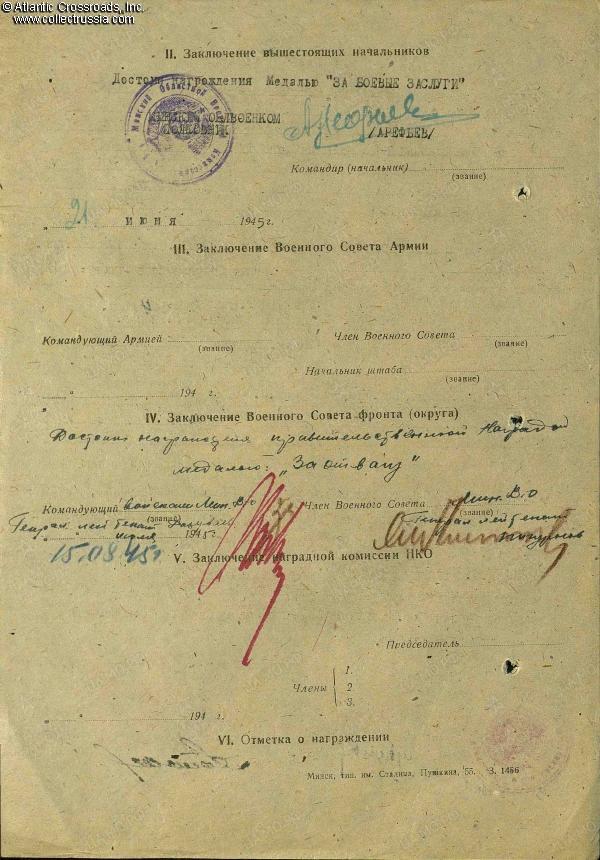 © Atlantic Crossroads, Inc.
www.collectrussia.com
II. Заключение вышестоящих начальников
Достоин награждения Медалью "ЗА БОЕВЫЕ ЗАСЛУГИ"
ОБЛВОЕНКОМ
ПОЛКОВНИК /АРЕФЬЕВ/
Командир (начальник)
(звание)
„21 июня 1945 г.
III. Заключение Военного Совета Армии
Командующий Армией Член Военного Совета
(звание) (звание)
Начальник штаба
(звание)
„ " 194 г.
IV. Заключение Военного Совета фронта (округа)
Достоин награждения правительственной наградой
медалью: „За отвагу"
Командующий войсками Мин. В/о Член Военного Совета Мин. В/о
(звание) (звание)
Генерал лейтенант Генерал лейтенант
июля 1945 г.
15.08.45г
V. Заключение наградной комиссии НКО
Председатель
Члены
1.
2
3.
„ " 194 г.
VI. Отметка о награждении
Минск, тип. им. Сталина, Пушкина, 55. З. 1456